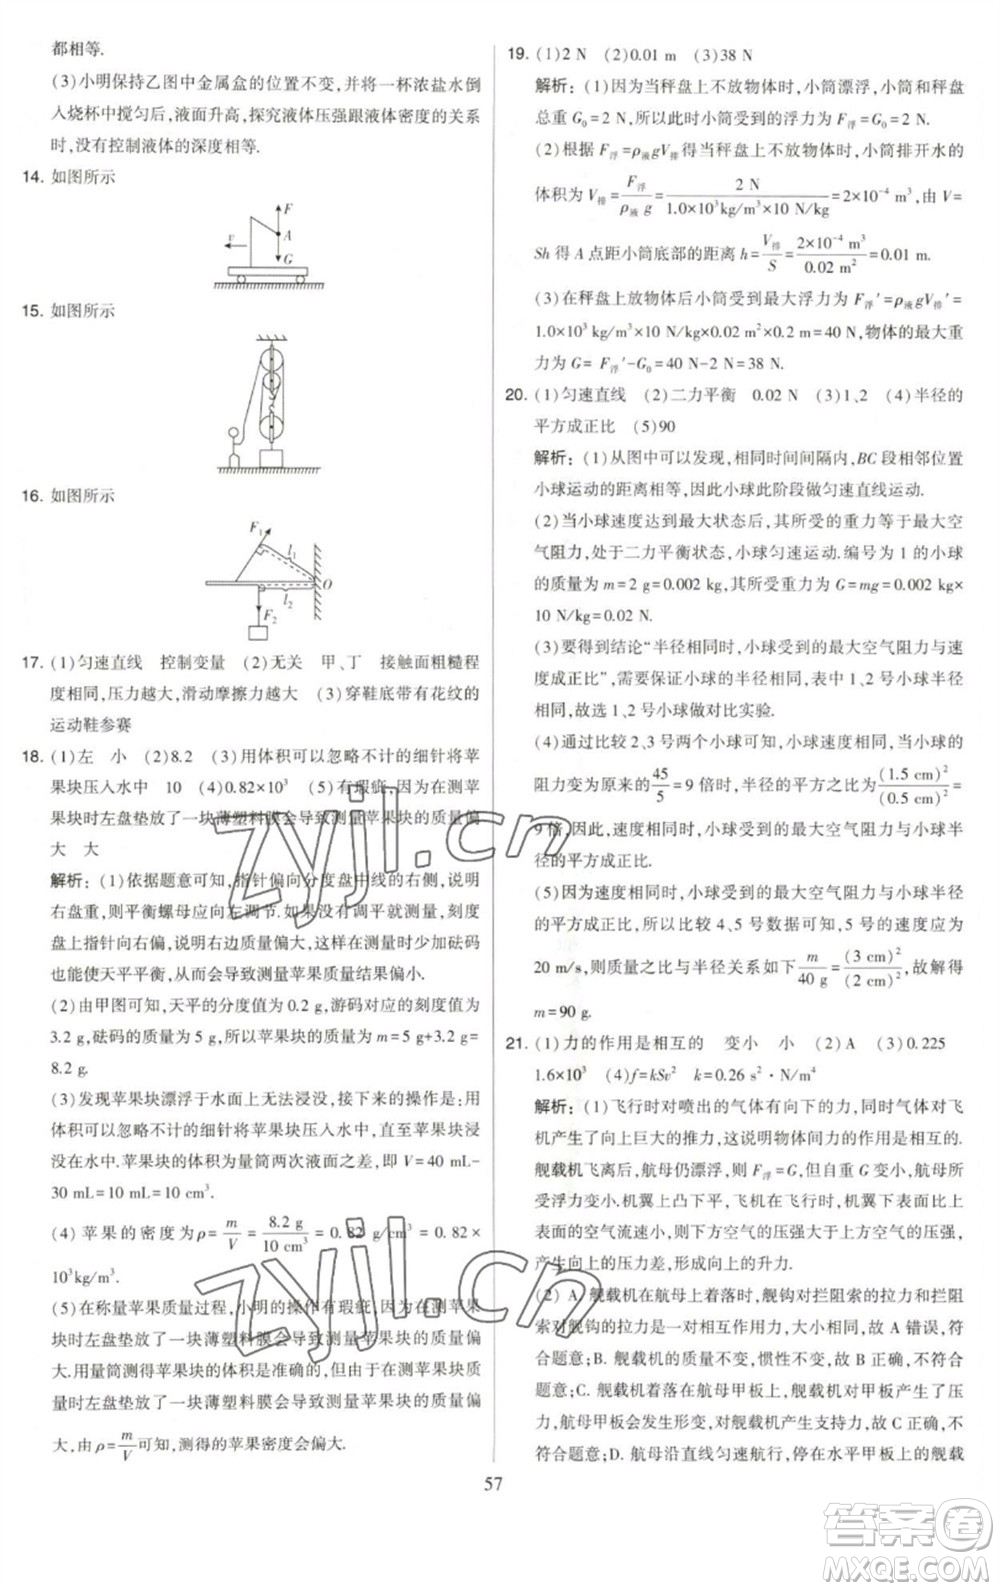 都相等.
(3)小明保持乙图中金属盒的位置不变,并将一杯浓盐水倒
入烧杯中搅匀后,液面升高,探究液体压强跟液体密度的关系
时,没有控制液体的深度相等.
14. 如图所示
F
A
v
G
15. 如图所示
16. 如图所示
F₁
l₁
O
l₂
F₂
17. (1)匀速直线 控制变量 (2)无关 甲、丁 接触面粗糙程
度相同,压力越大,滑动摩擦力越大 (3)穿鞋底带有花纹的
运动鞋参赛
18. (1)左 小 (2)8.2 (3)用体积可以忽略不计的细针将苹
果块压入水中 10 (4)0.82×10³ (5)有瑕疵,因为在测苹
果块时左盘垫放了一块薄塑料膜会导致测量苹果块的质量偏
大 大
解析:(1)依据题意可知,指针偏向分度盘中线的右侧,说明
右盘重,则平衡螺母应向左调节.如果没有调节,测量时,刻度
盘上指针向右偏,说明右边质量偏大,这样在测量时少加砝码
也能使天平平衡,所以会导致测量苹果质量结果偏小.
(2)由甲图可知,天平的分度值为0.2 g,游码对应的刻度值为
3.2 g,砝码的质量为5 g,所以苹果块的质量为m=5 g+3.2 g=
8.2 g.
(3)发现苹果块漂浮于水面上无法浸没,接下来的操作是:用
体积可以忽略不计的细针将苹果块压入水中,直至苹果块浸
没在水中.苹果块的体积为量筒两次液面之差,即V=40 mL-
30 mL=10 mL=10 cm³.
(4)苹果的密度为ρ=m/V=8.2 g/10 cm³=0.82 g/cm³=0.82×
10³kg/m³.
(5)在称量苹果质量过程,小明的操作有瑕疵,因为在测苹果
块时左盘垫放了一块薄塑料膜会导致测量苹果块的质量偏
大.用量筒测得苹果块的体积是准确的,但由于在测苹果块质
量时左盘垫放了一块薄塑料膜会导致测量苹果块的质量偏
大,由ρ=m/V可知,测得的苹果密度会偏大.
19. (1)2 N (2)0.01 m (3)38 N
解析:(1)因为当秤盘上不放物体时,小筒漂浮,小筒和秤盘
总重G₀=2 N,所以此时小筒受到的浮力为F浮=G₀=2 N.
(2)根据F浮=ρ液gV排得当秤盘上不放物体时,小筒排开水的
体积为V排=F浮/ρ液g=2 N/1.0×10³kg/m³×10 N/kg=2×10⁻⁴ m³,由V=
Sh得A点距小筒底部的距离h=V排/S=2×10⁻⁴ m³/0.02 m²=0.01 m.
(3)在秤盘上放物体后小筒受到最大浮力为F浮′=ρ液gV排′=
1.0×10³ kg/m³×10 N/kg×0.02 m²×0.2 m=40 N,物体的最大重
力为G=F浮′-G₀=40 N-2 N=38 N.
20. (1)匀速直线 (2)二力平衡 0.02 N (3)1、2 (4)半径的
平方成正比 (5)90
解析:(1)从图中可以发现,相同时间间隔内,BC段相邻位置
小球运动的距离相等,因此小球此阶段做匀速直线运动.
(2)当小球速度达到最大状态后,其所受的重力等于最大空
气阻力,处于二力平衡状态,小球匀速运动.编号为1的小球
的质量为m=2 g=0.002 kg,其所受重力为G=mg=0.002 kg×
10 N/kg=0.02 N.
(3)要得到结论“半径相同时,小球受到的最大空气阻力与速
度成正比”,需要保证小球的半径相同,表中1、2号小球半径
相同,故选1、2号小球做对比实验.
(4)通过比较2、3号两个小球可知,小球受到的最大空气
阻力变为原来的45/5=9倍时,半径的平方之比为(1.5 cm)²/(0.5 cm)²=
9倍,因此,速度相同时,小球受到的最大空气阻力与小球半
径的平方成正比.
(5)因为速度相同时,小球受到的最大空气阻力与小球半径
的平方成正比,所以比较4、5号数据可知,5号的速度应为
20 m/s,则质量之比与半径关系如下m/40 g=(3 cm)²/(2 cm)²,故解得
m=90 g.
21. (1)力的作用是相互的 变小 小 (2)A (3)0.225
1.6×10³ (4)f=kSv² k=0.26 s²·N/m⁴
解析:(1)飞行时对喷出的气体有向下的力,同时气体对飞
机产生了向上巨大的推力,这说明物体间力的作用是相互的.
舰载机飞离后,航母仍漂浮,则F浮=G,但自重G变小,所受的
浮力变小.机翼上凸下平,飞机在飞行时,机翼下表面比上
表面的空气流速小,则下方空气的压强大于上方空气的压强,
产生向上的压力差,从而产生向上的升力.
(2)A.舰载机在航母上着落时,舰钩对拦阻索的拉力和拦阻
索对舰钩的拉力是一对相互作用力,大小相同,故A错误,符
合题意;B.舰载机的质量不变,惯性不变,故B正确,不符合
题意;C.舰载机着落在航母甲板时,对航母甲板产生了压
力,航母甲板会发生形变,对舰载机产生支持力,故C正确,不
符合题意;D.航母沿直线匀速航行,停在水平甲板上的舰载
57
zyjl.cn
zyjl.cn
答案圈
MXQE.COM